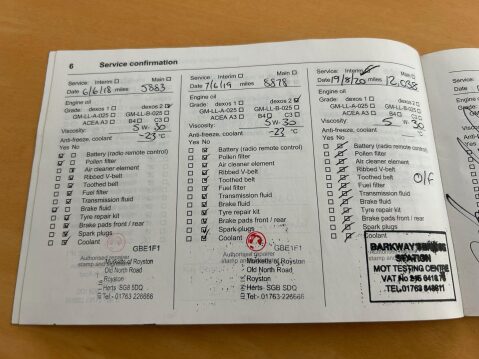 6 Service confirmation
Service: Interim Main
Date 6/6/18 miles 5883
Engine oil
Grade: dexos 1 dexos 2
GM-LL-A-025 GM-LL-B-025
ACEA A3 B4 C3
Viscosity: 5 W- 30
Anti-freeze, coolant -23 °C
Yes No
Battery (radio remote control)
Pollen filter
Air cleaner element
Ribbed V-belt
Toothed belt
Fuel filter
Transmission fluid
Brake fluid
Tyre repair kit
Brake pads front / rear
Spark plugs
Coolant
GBE1F1
Authorised repairer
stamp and
of Royston
Old North Road
Royston
Herts SG8 5DQ
Tel - 01763
Service: Interim Main
Date 7/6/19 miles 8878
Engine oil
Grade: dexos 1 dexos 2
GM-LL-A-025 GM-LL-B-025
ACEA A3 B4 C3
Viscosity: 5 W- 30
Anti-freeze, coolant -23 °C
Yes No
Battery (radio remote control)
Pollen filter
Air cleaner element
Ribbed V-belt
Toothed belt
Fuel filter
Transmission fluid
Brake fluid
Tyre repair kit
Brake pads front / rear
Spark plugs
Coolant
GBE1F1
Authorised repairer
stamp and
of Royston
Old North Road
Royston
Herts SG8 5DQ
Tel - 01763
Service: Interim Main
Date 19/8/20 miles 12,038
Engine oil
Grade: dexos 1 dexos 2
GM-LL-A-025 GM-LL-B-025
ACEA A3 B4 C3
Viscosity: 5 W 30
Anti-freeze, coolant °C
Yes No
Battery (radio remote control)
Pollen filter
Air cleaner element
Ribbed V-belt
Toothed belt O/F
Fuel filter
Transmission fluid
Brake fluid
Tyre repair kit
Brake pads front / rear
Spark plugs
Coolant
BARKWAY SERVICE
STATION
MOT TESTING CENTRE
VAT No
TEL. 01763
Service:
Date
Engine oil
Grade:
Viscosity:
Yes No